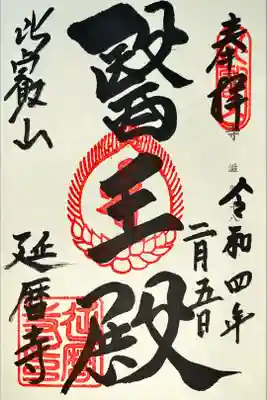 奉拝
令和四年
二月五日
醫王殿
比叡山
延暦寺